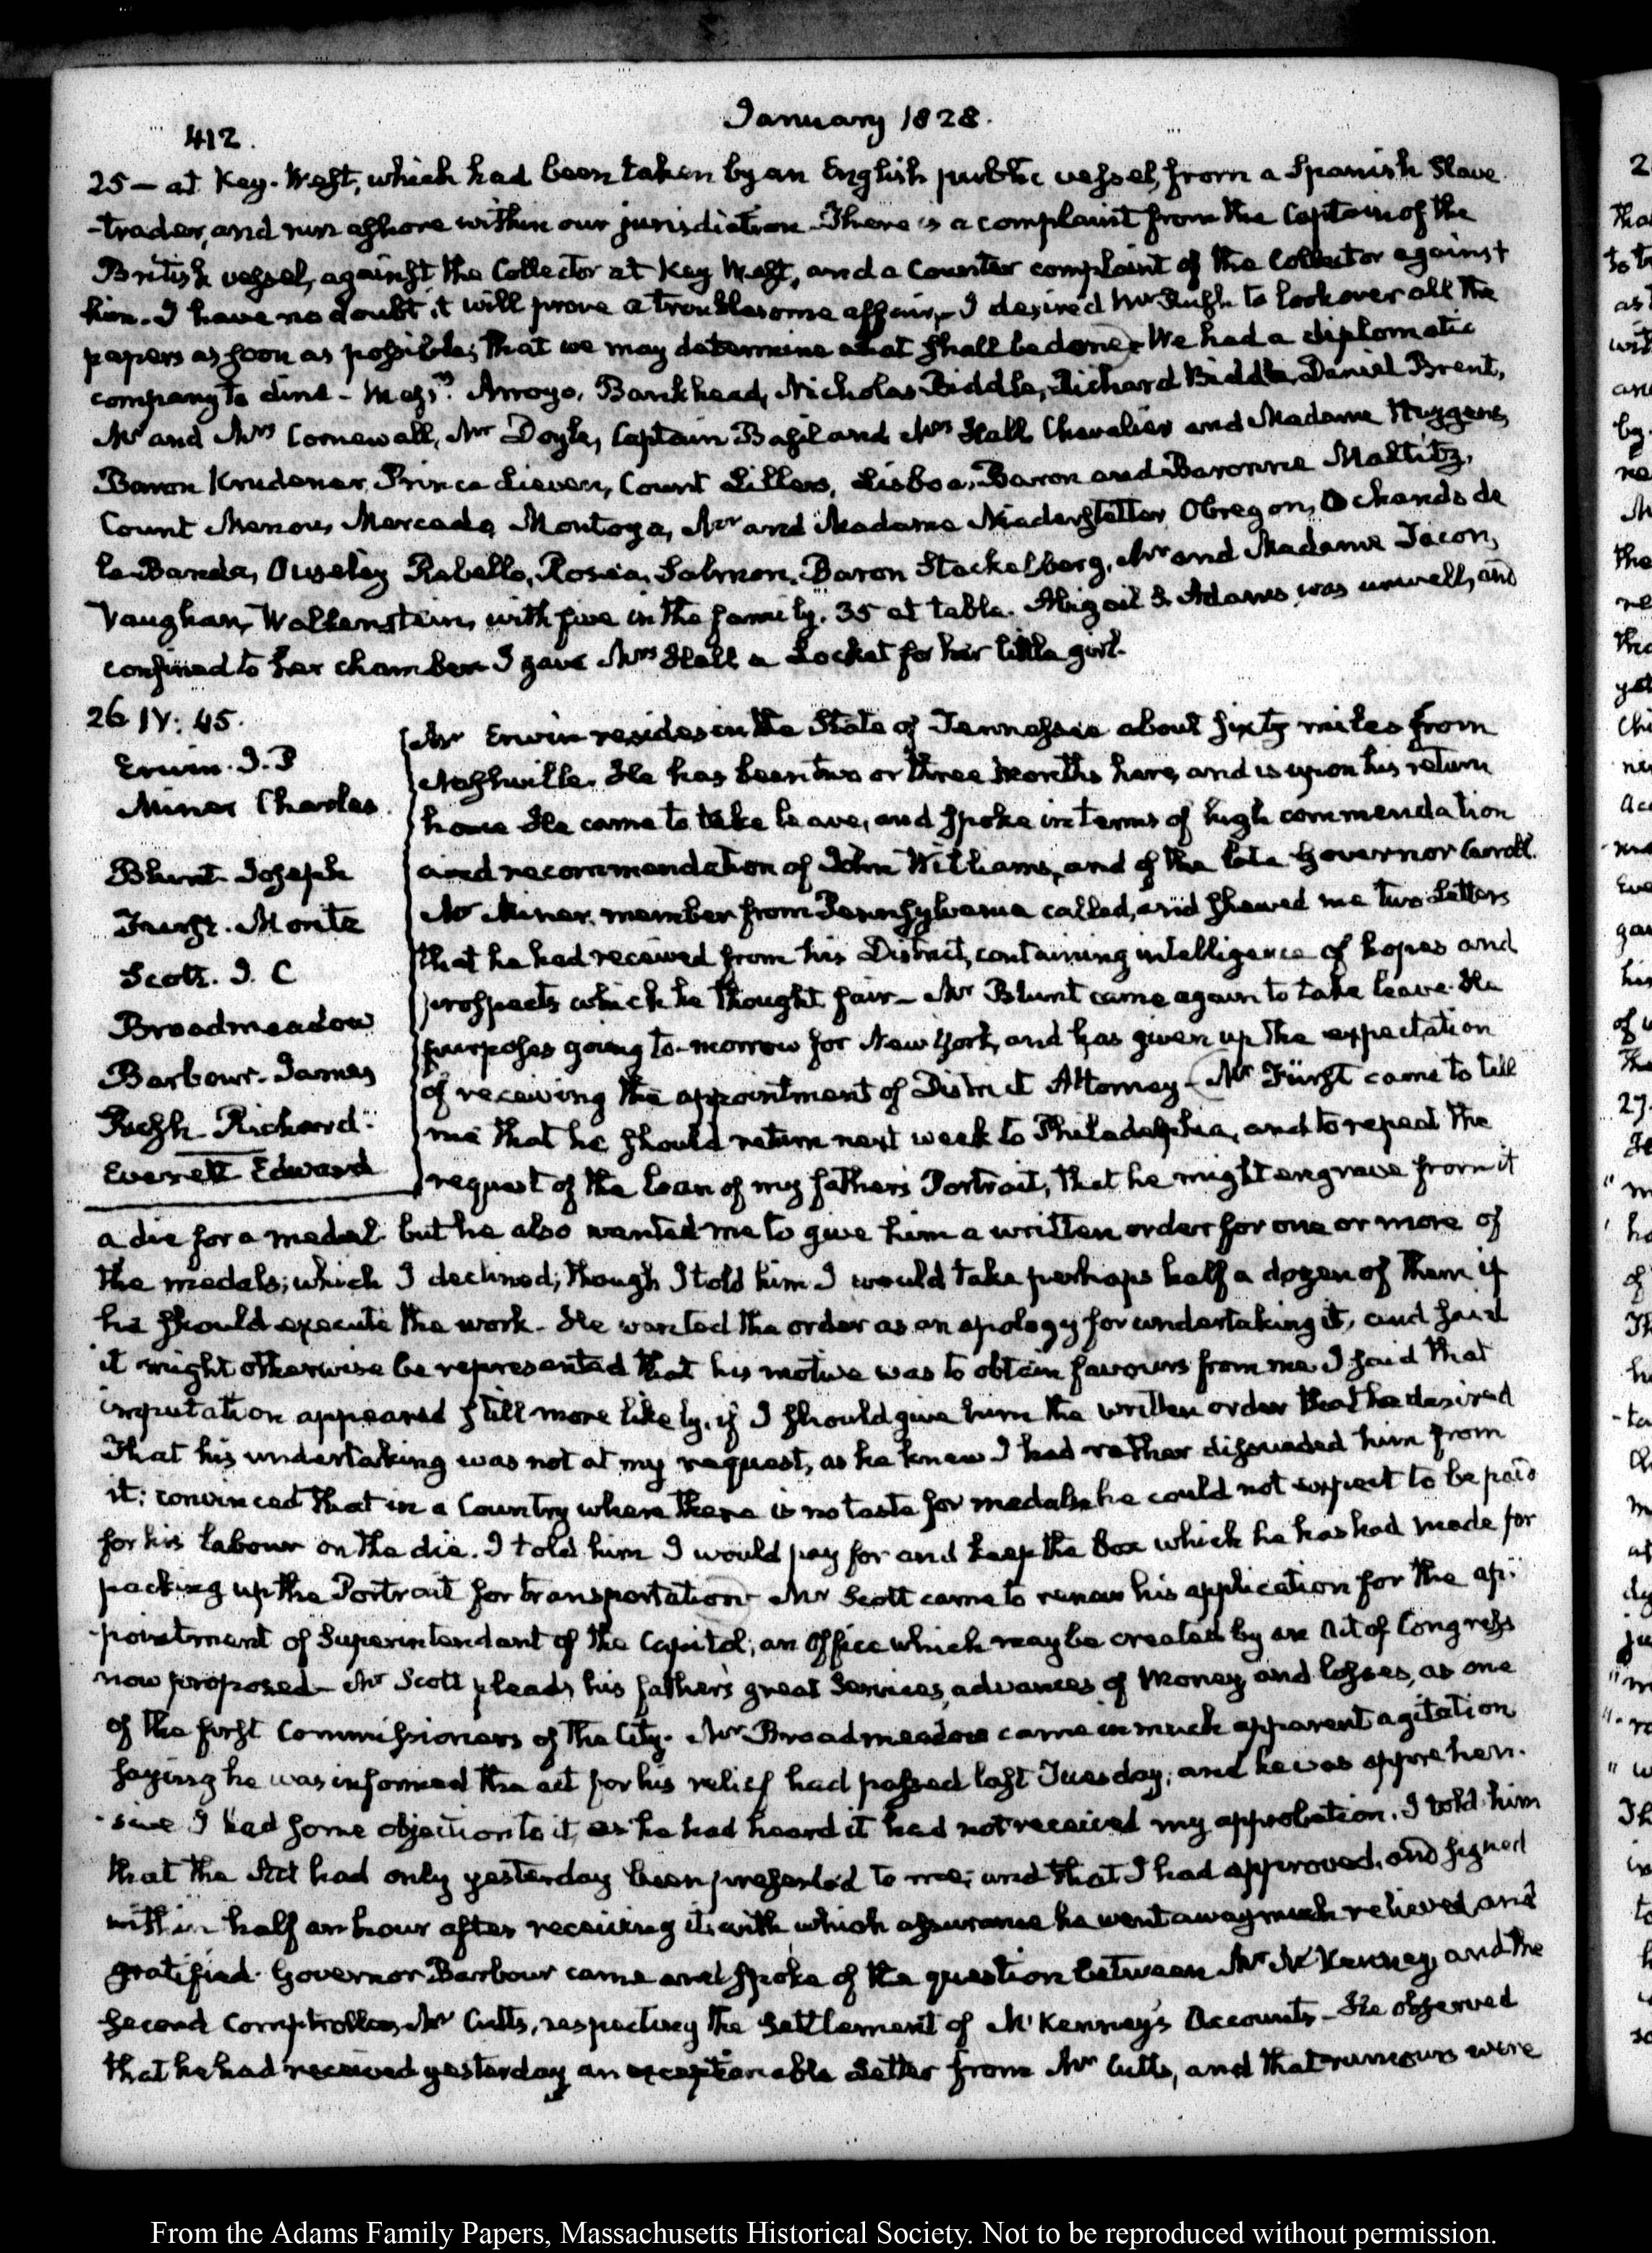 412.
January 1828.
25 — at Key-West, which had been taken by an English public vessel, from a Spanish Slave
-trader, and run ashore within our jurisdiction. There is a complaint from the Captain of the
British vessel, against the Collector at Key West, and a Counter complaint of the Collector against
him. I have no doubt it will prove a troublesome affair. I desired Mr Rush to look over all the
papers as soon as possible; that we may determine what shall be done. We had a diplomatic
company to dine – Messrs. Arroyo, Bankhead, Nicholas Biddle, Richard Biddle, Daniel Brent,
Mr and Mrs Cornewall, Mr Doyle, Captain Basil and Mrs Hall Chevalier and Madame Huygens,
Baron Krudener, Prince Lieven, Count Lillers, Lisboa, Baron and Baronne Maltitz,
Count Menou, Mercado, Montoya, Mr and Madame Niederstetter Obregon, Ochando de
la Banda, Ouseley Rebello, Rosea, Salmon, Baron Stackelberg, Mr and Madame Tacon,
Vaughan, Wallenstein, with five in the family. 35 at table. Abigail S. Adams was unwell, and
confined to her chamber I gave Mrs Hall a Locket for her little girl.
26 IV: 45.
Erwin. I. P
Miner Charles.
Blunt. Joseph
Furst. Moritz
Scott. I. C
Broadmeadow
Barbour. James
Rush Richard.
Everett Edward
Mr Erwin resides in the State of Tennessee about sixty miles from
Nashville. He has been two or three Months here, and is upon his return
home He came to take leave, and spoke in terms of high commendation
and recommendation of John Williams, and of the late Governor Carroll.
Mr Miner, member from Pennsylvania called, and shewed me two Letters
that he had received from his District, containing intelligence of hopes and
prospects which he thought fair – Mr Blunt came again to take leave. He
purposes going to-morrow for New York, and has given up the expectation
of receiving the appointment of District Attorney – Mr Fürst came to tell
me that he should return next week to Philadelphia, and to repeat the
request of the loan of my father's Portrait, that he might engrave from it
a die for a medal. but he also wanted me to give him a written order for one or more of
the medals; which I declined; though I told him I would take perhaps half a dozen of them if
he should execute the work – He wanted the order as an apology for undertaking it, and said
it might otherwise be represented that his motive was to obtain favours from me. I said that
imputation appeared still more likely, if I should give him the written order that he desired
That his undertaking was not at my request, as he knew I had rather dissuaded him from
it; convinced that in a Country where there is no taste for medals he could not expect to be paid
for his labour on the die. I told him I would pay for and keep the box which he has had made for
packing up the Portrait for transportation – Mr Scott came to renew his application for the ap-
-pointment of Superintendant of the Capitol; an Office which may be created by an Act of Congress
now proposed – Mr Scott pleads his father's great Services, advances of Money and losses, as one
of the first Commissioners of the City. Mr Broadmeadow came in much apparent agitation
saying he was informed the act for his relief had passed last Tuesday; and he was apprehen-
-sive I had some objection to it, as he had heard it had not received my approbation. I told him
that the Act had only yesterday been presented to me; and that I had approved, and signed
within half an hour after receiving it; with which assurance he went away much relieved and
gratified. Governor Barbour came and spoke of the question between Mr McKenney, and the
second Comptroller, Mr Cutts, respecting the Settlement of McKenney's Accounts – He observed
that he had received yesterday an exceptionable Letter from Mr Cutts, and that rumours were
From the Adams Family Papers, Massachusetts Historical Society. Not to be reproduced without permission.